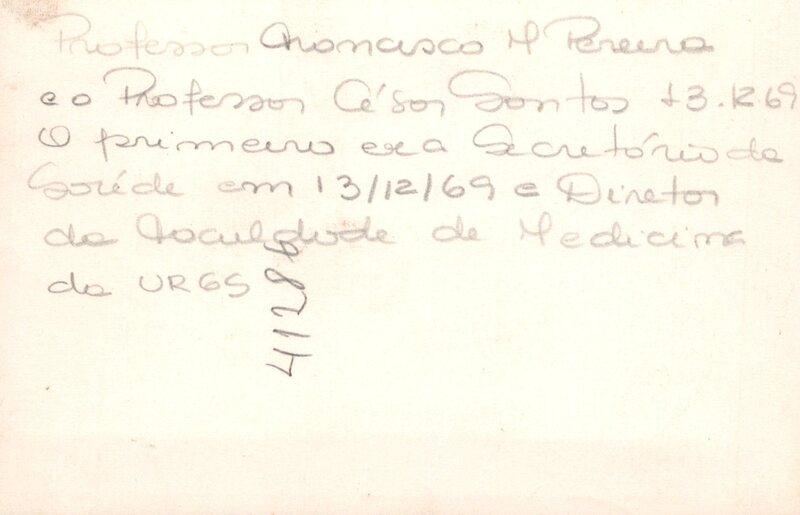 Professor Francisco M Pereira
e o Professor César Santos 13.12.69
O primeiro era Secretário da
Saúde em 13/12/69 e Diretor
da Faculdade de Medicina
da URGS
41286